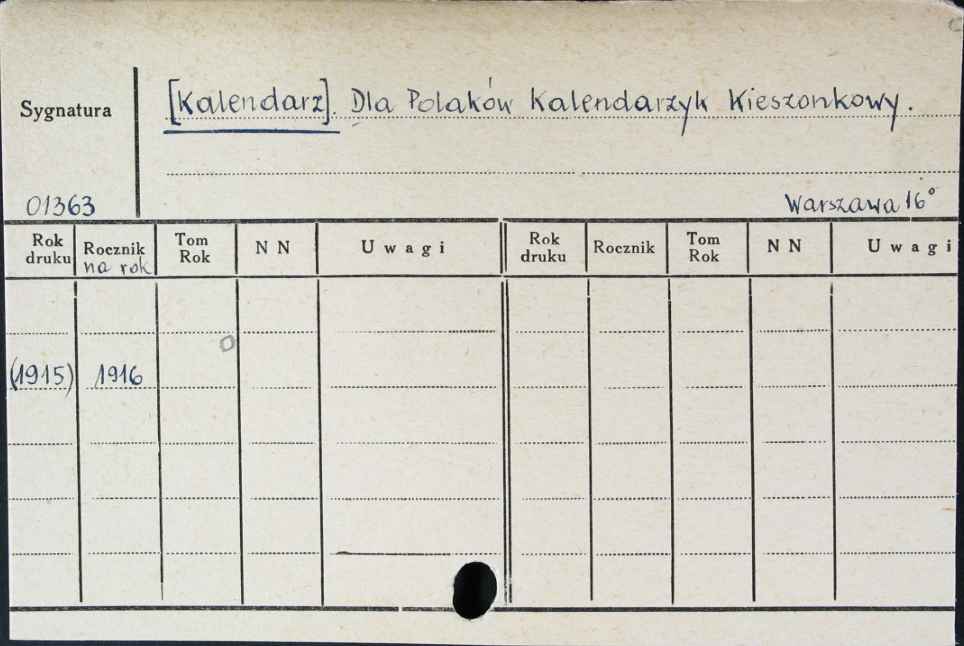 Sygnatura
[Kalendarz]. Dla Polaków Kalendarzyk Kieszonkowy.
01363
Warszawa 16°
Rok druku Rocznik na rok Tom Rok NN Uwagi Rok druku Rocznik Tom Rok NN Uwagi
(1915) 1916